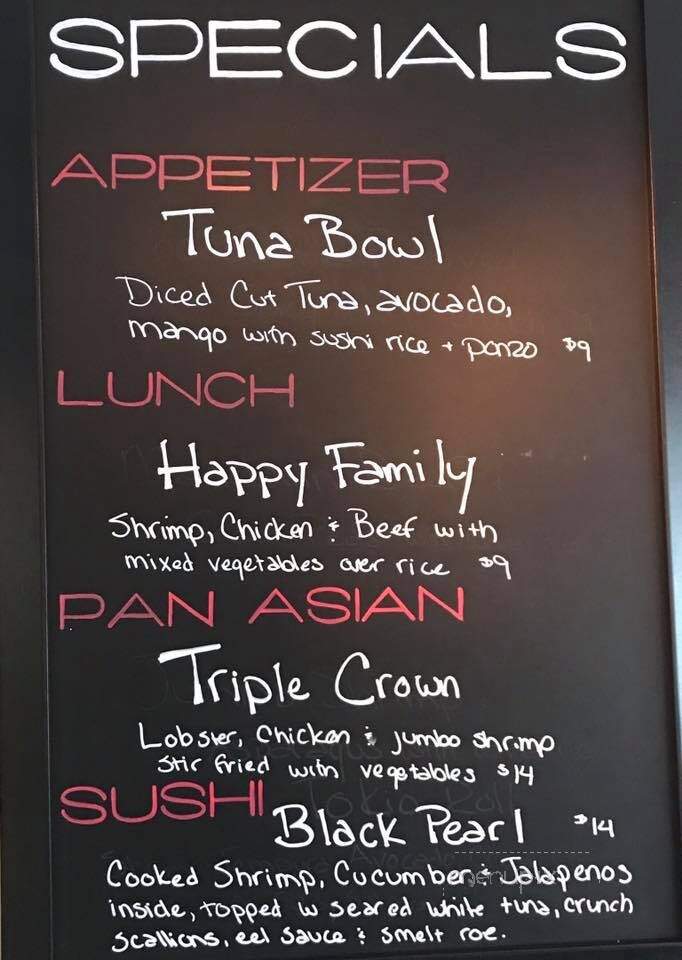 SPECIALS
APPETIZER
Tuna Bowl
Diced Cut Tuna, avocado,
mango with sushi rice + ponzo $9
LUNCH
Happy Family
Shrimp, Chicken & Beef with
mixed vegetables over rice $9
PAN ASIAN
Triple Crown
Lobster, Chicken & jumbo shrimp
Stir fried with vegetables $14
SUSHI
Black Pearl $14
Cooked Shrimp, Cucumber & Jalapenos
inside, topped w seared white tuna, crunch
scallions, eel sauce & smelt roe.